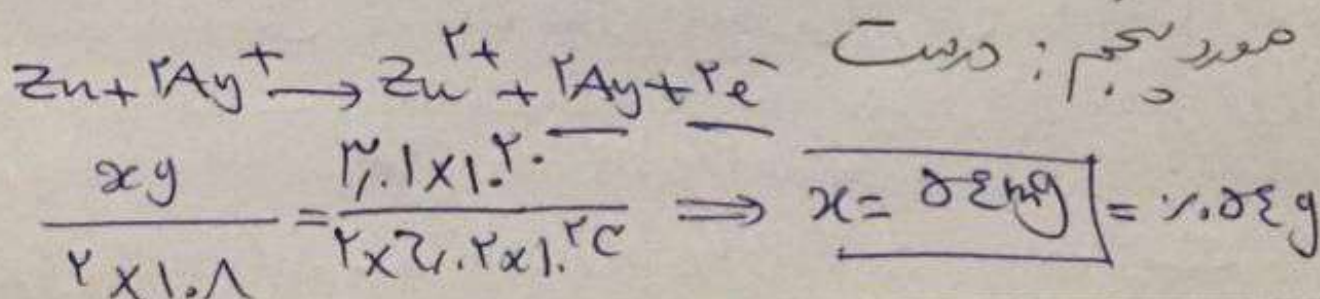 مورد پنجم: درست
Zn + ۲Ag⁺ → Zn²⁺ + ۲Ag + ۲e⁻
xg / ۲×۱۰۸ = ۳٫۰۱×۱۰²⁰ / ۲×۶٫۰۲×۱۰²³ ⇒ x = ۵۴mg = ۰٫۰۵۴g